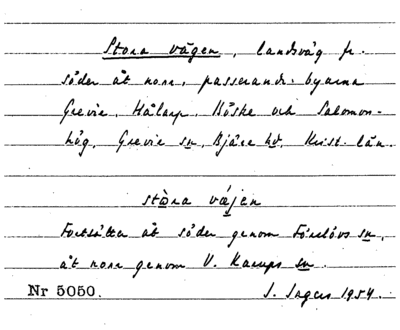 Stora vägen, landsväg fr.
söder åt norr, passerande byarna
Grevie, Hålarp, Böske och Salomon-
hög. Grevie sn, Bjäre hd. Krist. län.
stòra vä́jen
Fortsätter åt söder genom Förslövs sn,
åt norr genom V. Karups sn.
Nr 5050. J. Ingers 1954.